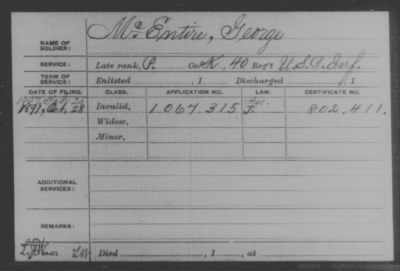 NAME OF SOLDIER: McEntire, George
SERVICE: Late rank, P. Co. K, 40 Reg't U.S.C. Inf.
TERM OF SERVICE: Enlisted , 1 Discharged , 1
DATE OF FILING. CLASS. APPLICATION NO. LAW. CERTIFICATE NO.
1891, Oct. 28 Invalid, 1.067.315 J. 802.411.
Widow,
Minor,
ADDITIONAL SERVICES:
REMARKS:
Died , 1 , at